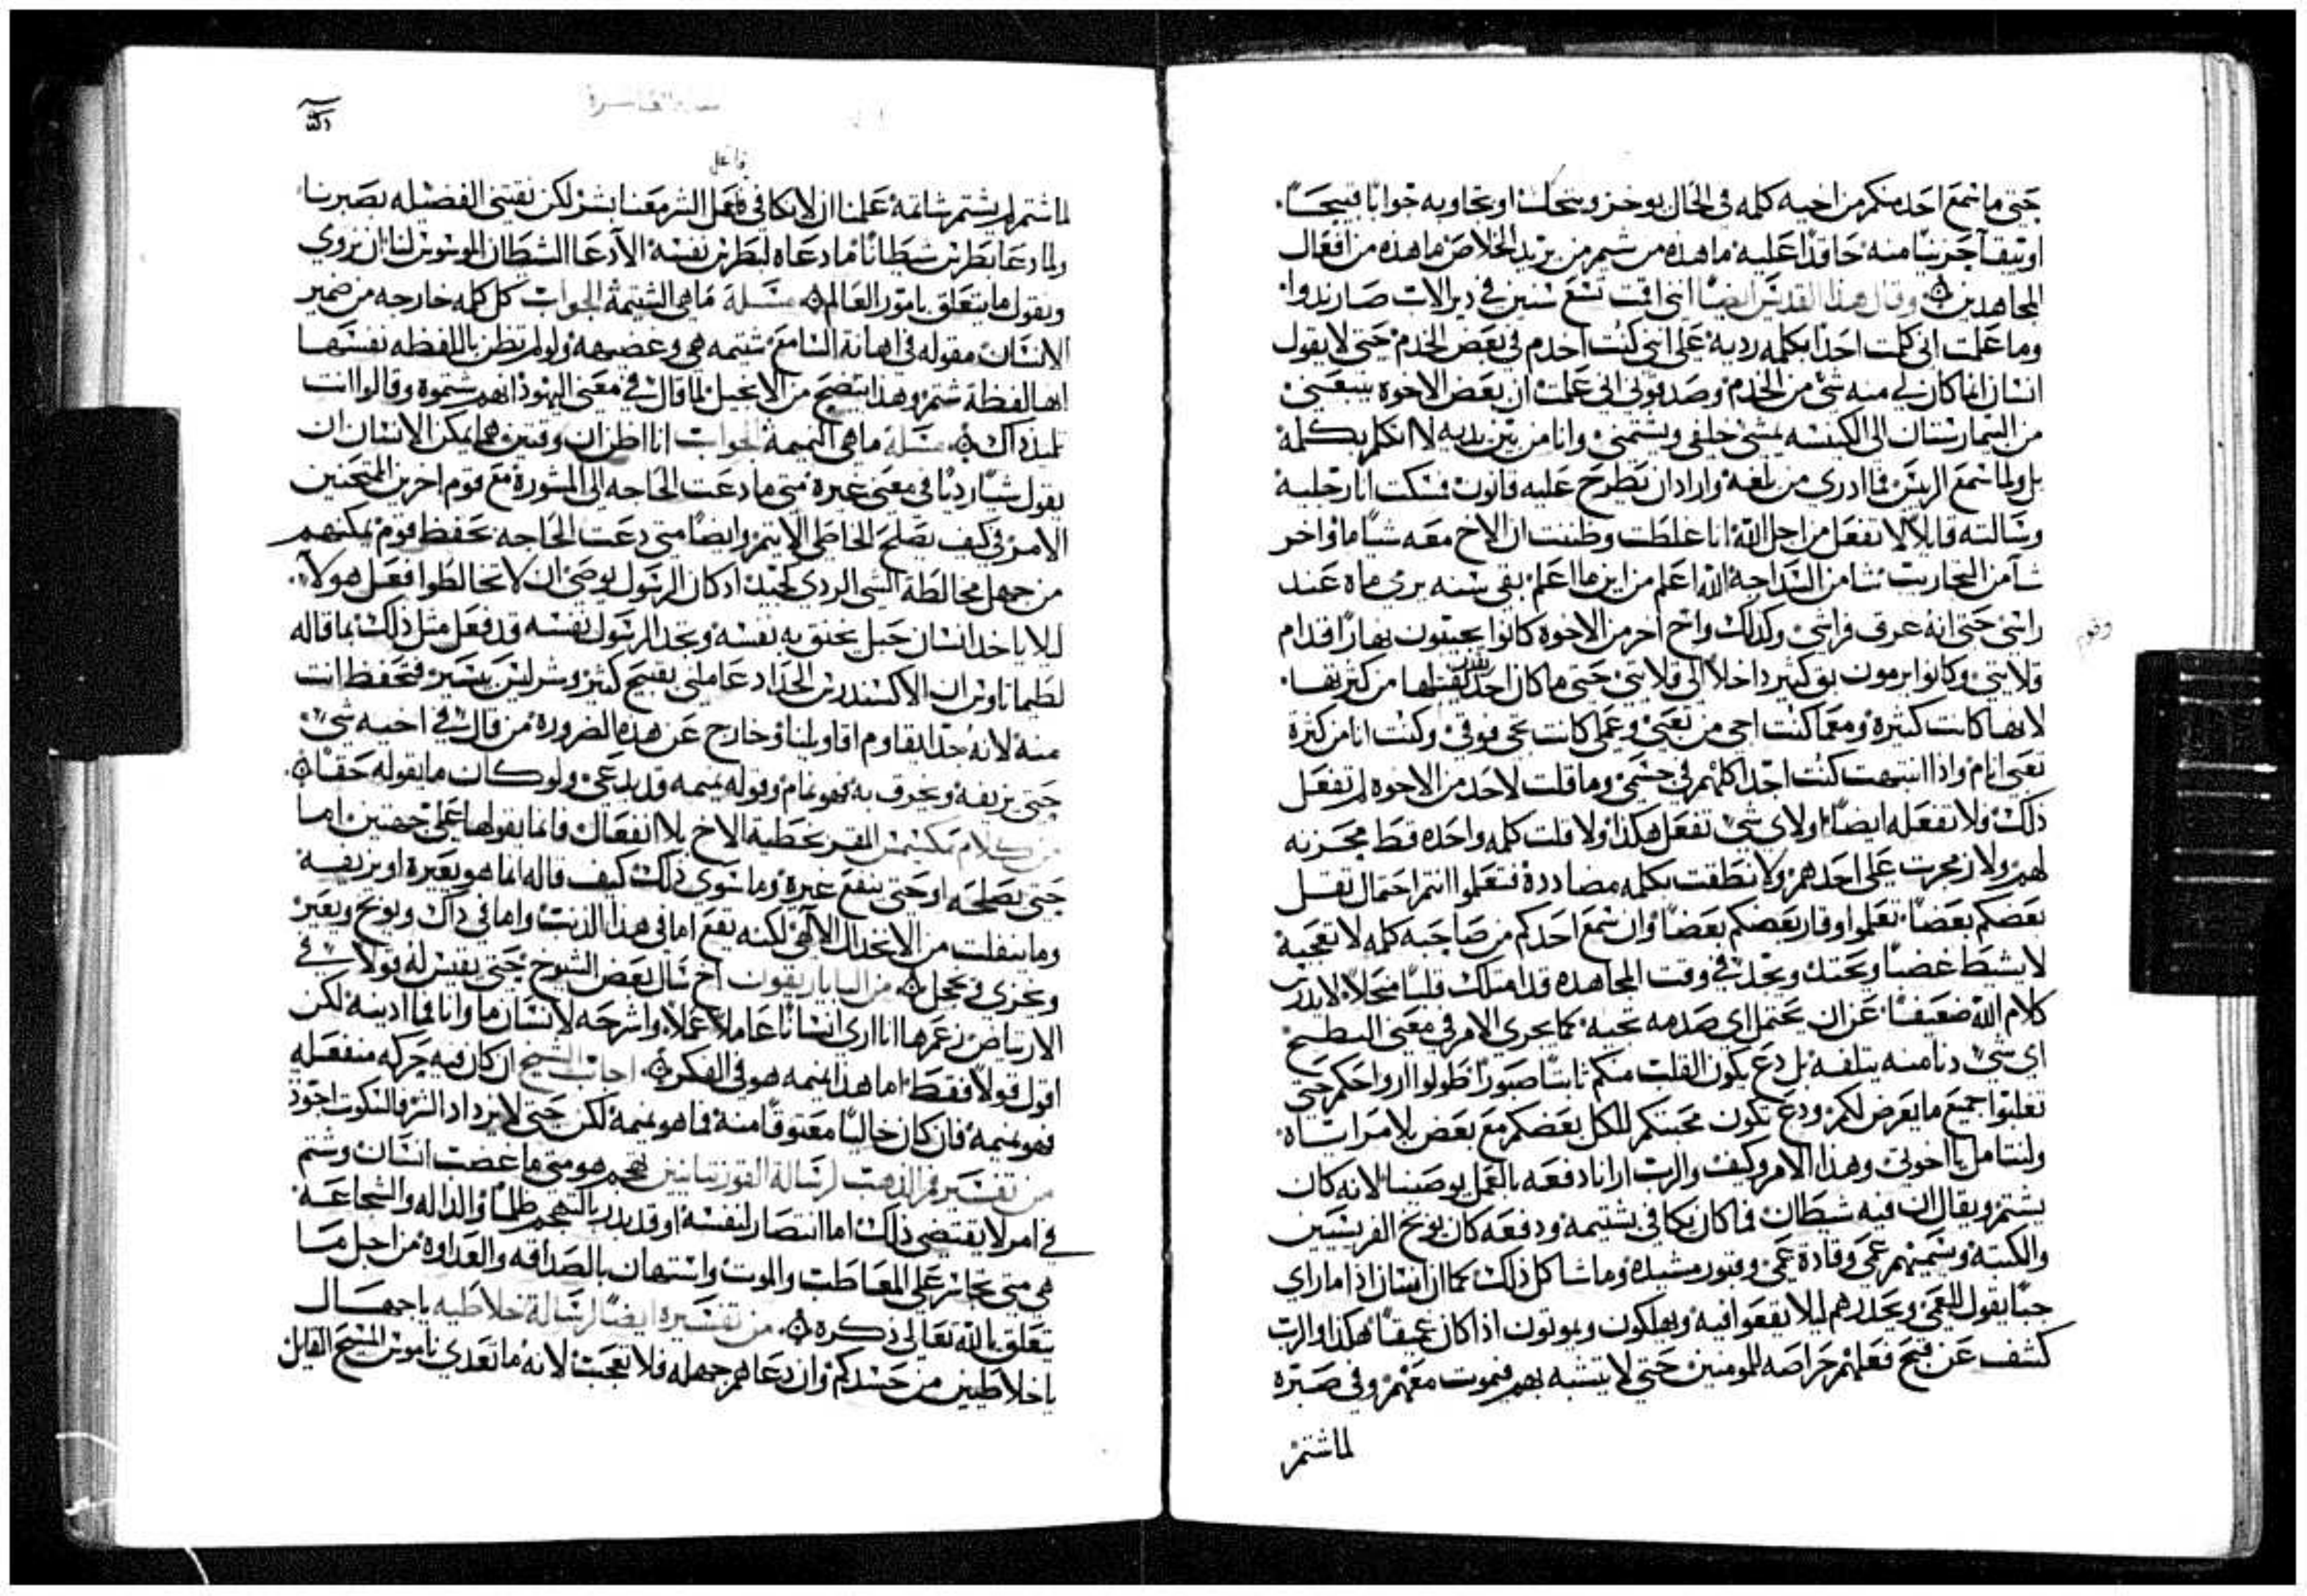 حتى ما سمع احد منكم من اخيه كلمه فى الحال يوخز ويتحلث او يجاوبه جوابًا قبيحًا
او يبقا حزينًا منه حاقدًا عليه ما هذه من شيم من يريد الخلاص ما هذه من افعال
المجاهدين وقال هذا القديس ايضًا اننى اقمت تسع سنين فى دير الاب صاريدوا
وما علمت انى كلمت احدًا بكلمه رديه على اننى كنت اخدم فى بعض الخدم حتى لا يقول
انسان انما كان لى منه شى من الخدم وصدقونى انى علمت ان بعض الاخوه يتبعنى
من البيمارستان الى الكنيسه يمشى خلفى ويشتمنى وانا من بين يديه لا اتكلم بكلمة
بل ولما سمع الريس فما ادرى من بلغه واراد ان يطرح عليه قانون مسكت انا رجليه
وسالته قايلًا لا تفعل من اجل الله انا غلطت وظننت ان الاخ معه شيًا ما واخر
شا من التجاريب شا من السداجة الله اعلم من اين ما اعلم بقى سنه يرمى ماه عند
راسى حتى انه غرق فراشى وكذلك واخ اخر من الاخوه كانوا يجيبون نهارًا قدام
قلايتى وكانوا يرمون بق كثير داخلًا الى قلايتى حتى ما كان احد يقتلها من كثرتها
لانها كانت كثيره ومعما كنت اجى من تعبى وعملى كانت تجى فوقى وكنت انا من كثرة
تعبى انام واذا انتبهت كنت اجد اكلهم فى جسمى وما قلت لاحد من الاخوه لم تفعل
ذلك ولا تفعله ايضًا او لاى شى تفعل هكذا ولا قلت كلمه واحده قط محزنه
لهم ولا زمجرت على احدهم ولا نطقت بكلمه مضادده فتعلموا انتم احتمال ثقل
بعضكم بعضًا تعلموا وقار بعضكم بعضًا وان سمع احدكم من صاحبه كلمه لا تعجبه
لا يشيط غضبًا ويحتد ويجد فى وقت المجاهده قد امتلك قلبًا منحلًا
كلام الله ضعيفًا عن ان يحتمل اى صدمه تجيه كما يجرى الامر فى معنى البطيخ
اى شى دنا منه يتلفه بل دع يكون القلب منكم ثابتًا صبورًا طولوا ارواحكم حتى
تغلبوا جميع ما يعرض لكم ودع تكون محبتكم للكل بعضكم مع بعض بلا مراياه
ولنتامل يا اخوتى وهذا الامر وكيف والرب ارانا دفعه بالعمل يوصينا لانه كان
يشتم ويقال ان فيه شيطان فما كان يكافى بشتيمه ودفعه كان يوبخ الفريسيين
والكتبة ويسميهم عمى وقادة عمى وقبور مشيده وما شاكل ذلك كما ان انسان اذا ما راى
جبًا يقول للعمى ويحذرهم ليلا يقعوا فيه ويهلكون ويموتون اذا كان عميقًا هكذا والرب
كشف عن قبح فعلهم حراصه للمومنين حتى لا يتشبه بهم فيموت معهم وفى صبره
لما شتم
وقوم
فاعل
لما شتم لم يشتم شاتمة علمنا ان لا نكافى فاعل الشر معنا بشر لكن نقتنى الفضيله بصبرنا
ولما دعا بطرس شيطانًا ما دعاه لبطرس نفسه الا دعا الشيطان الموسوس لنا ان نروى
ونقول ما يتعلق بامور العالم مسله ما هى الشتيمة الجواب كل كلمه خارجه من ضمير
الانسان مقوله فى اهانة السامع شتيمه هى وغضبه ولو لم تظن باللفظه نفسها
انها لفظة شتم وهذا يتضح من الانجيل لما قال فى معنى اليهود انهم شتموه وقالوا انت
تلميذ ذاك مسله ما هى النميمة الجواب انا اظن ان وقتين هما يمكن الانسان ان
يقول شيًا رديًا فى معنى غيره متى ما دعت الحاجه الى المشورة مع قوم اخرين الممتحنين
الامر فى كيف يصلح الخاطى الاثيم وايضًا متى دعت الحاجه تحفظ قوم يمكنهم
من جهل مخالطة الشى الردى كجيد اذ كان الرسول يوصى ان لا تخالطوا فعل هولا
ليلا ياخذ انسان حبل يخنق به نفسه ونجد الرسول نفسه قد فعل مثل ذلك بما قاله
لطيماثاوس ان الاكسندرس الحداد عاملنى بقبيح كثير وشر ليس بيسير فتحفظ انت
منه لانه جدًا يقاوم اقاويلنا وخارج عن هذه الضروره من قال فى اخيه شى
حتى يزيفه ويحرف به فهو نمام وقوله نميمه قد يدعى ولو كان ما يقوله حقًا
من كلام مكسيمس القر بخطية الاخ بلا انفعال فانما يقولها على جهتين اما
حتى يصلحه او حتى ينفع غيره وما سوى ذلك كيف قاله انما هو يعيره او يزيفه
وما ينفلت من الانخدال الالاهى لكنه يقع اما فى هذا الذنب واما فى ذاك ويوبخ ويعير
ويخزى فى محجل من البابا ريقون اخ سال بعض الشيوخ حتى يفيس له قولًا فى
الارتياض زعم ها انا ارى انسانًا عاملًا عملًا واشرحه لانسان ما وانا فما ادينه لكن
اقول قولًا فقط اما هذا نميمه هو فى الفكر اجاب الشيخ ان كان فيه حركه منفعله
فهو نميمه فان كان خاليًا معتوقًا منه فما هو نميمه لكن حتى لا يزداد الشر فالسكوت اجود
من تفسير فم الذهب لرسالة القورنتانيين تهجم هو متى ما غضب انسان وشتم
فى امر لا يقتضى ذلك اما انتصار لنفسه او قد يدر بالتهجم ظلمًا والداله والشجاعه
هى متى تجاسر على المعاطب والموت واستهان بالصداقه والعداوه من اجل ما
يتعلق بالله تعالى ذكره من تفسيره ايضًا لرسالة غلاطيه يا جهال
يا غلاطيين من حسدكم وان دعاهم جهله فلا تعجب لانه ما تعدى ناموس المسيح القايل